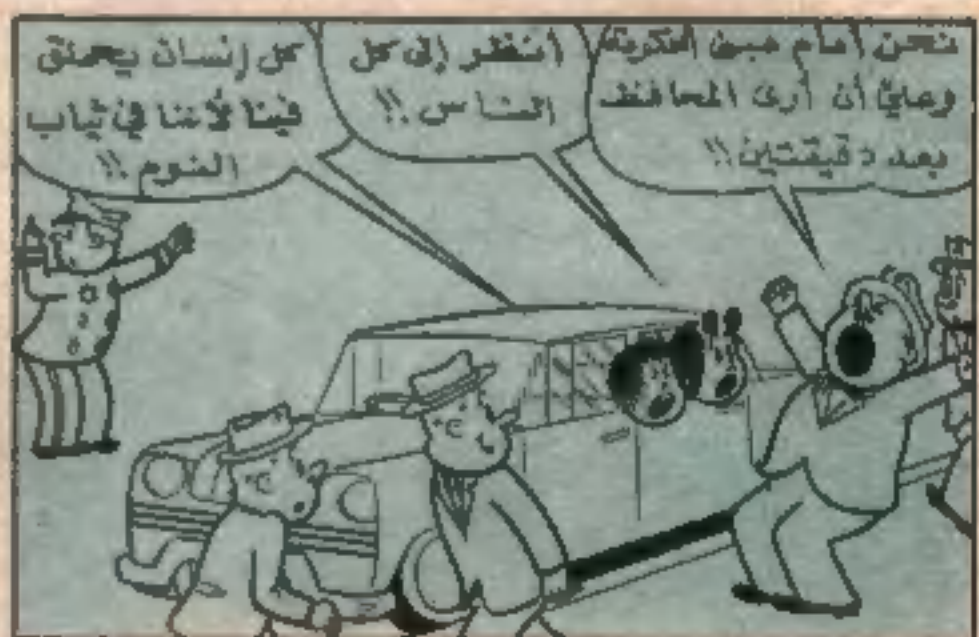 نحن أمام مبنى الحكومة
وعليّ أن أرى المحافظ
بعد دقيقتين !!
انظر إلى كل
الناس !!
كل إنسان يحملق
فينا لأننا في ثياب
النوم !!